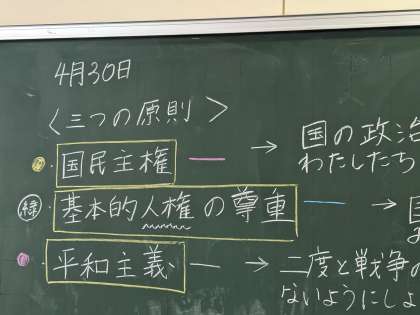 4月30日
〈三つの原則〉
・国民主権 — → 国の政治
わたしたち
緑・基本的人権の尊重 — →
・平和主義 — → 二度と戦争の
ないようにしよ